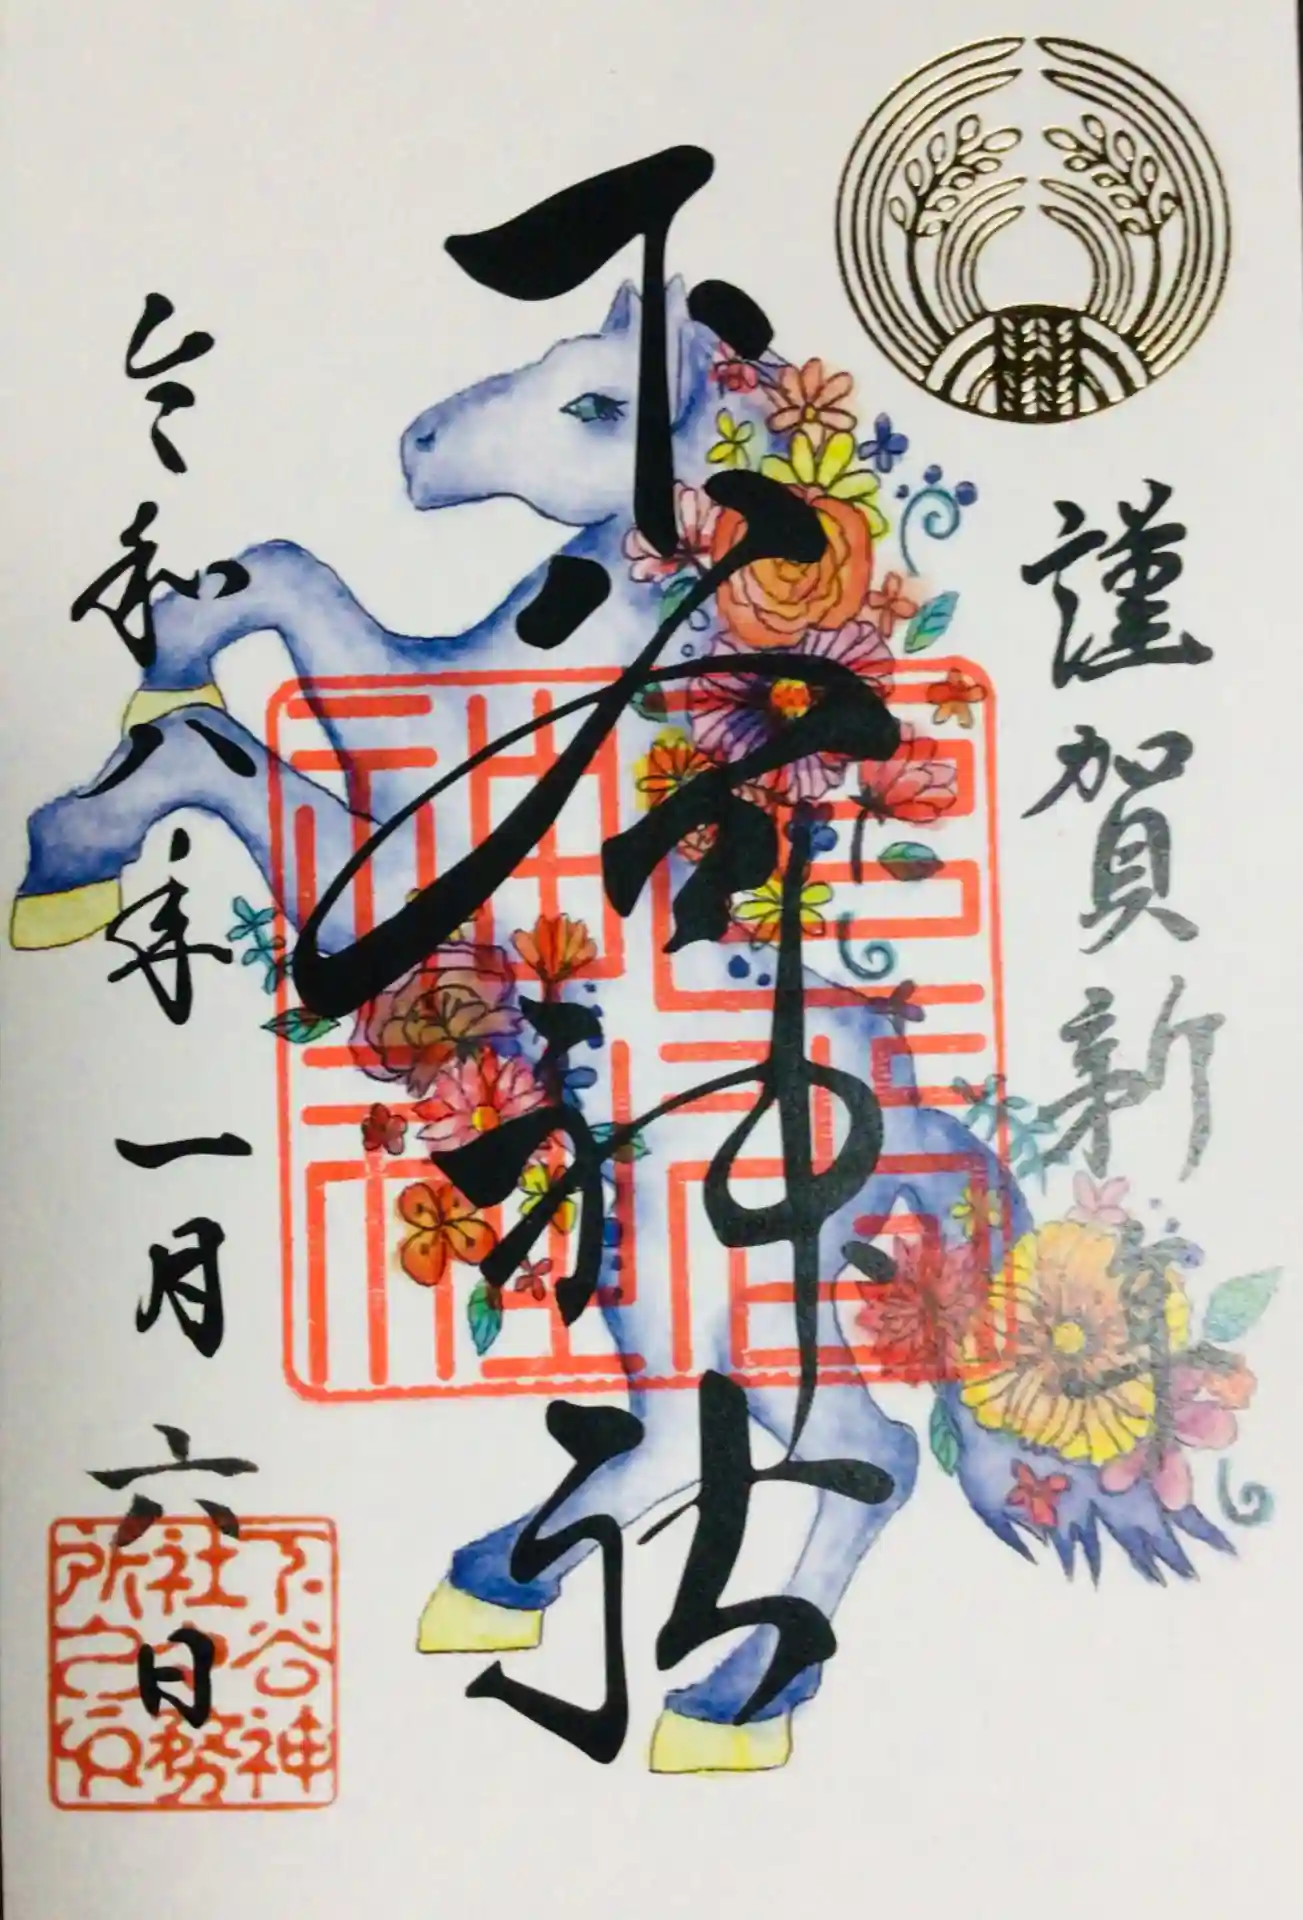 謹賀新年
下谷神社
令和八年一月六日
下谷神
社社務
所之印